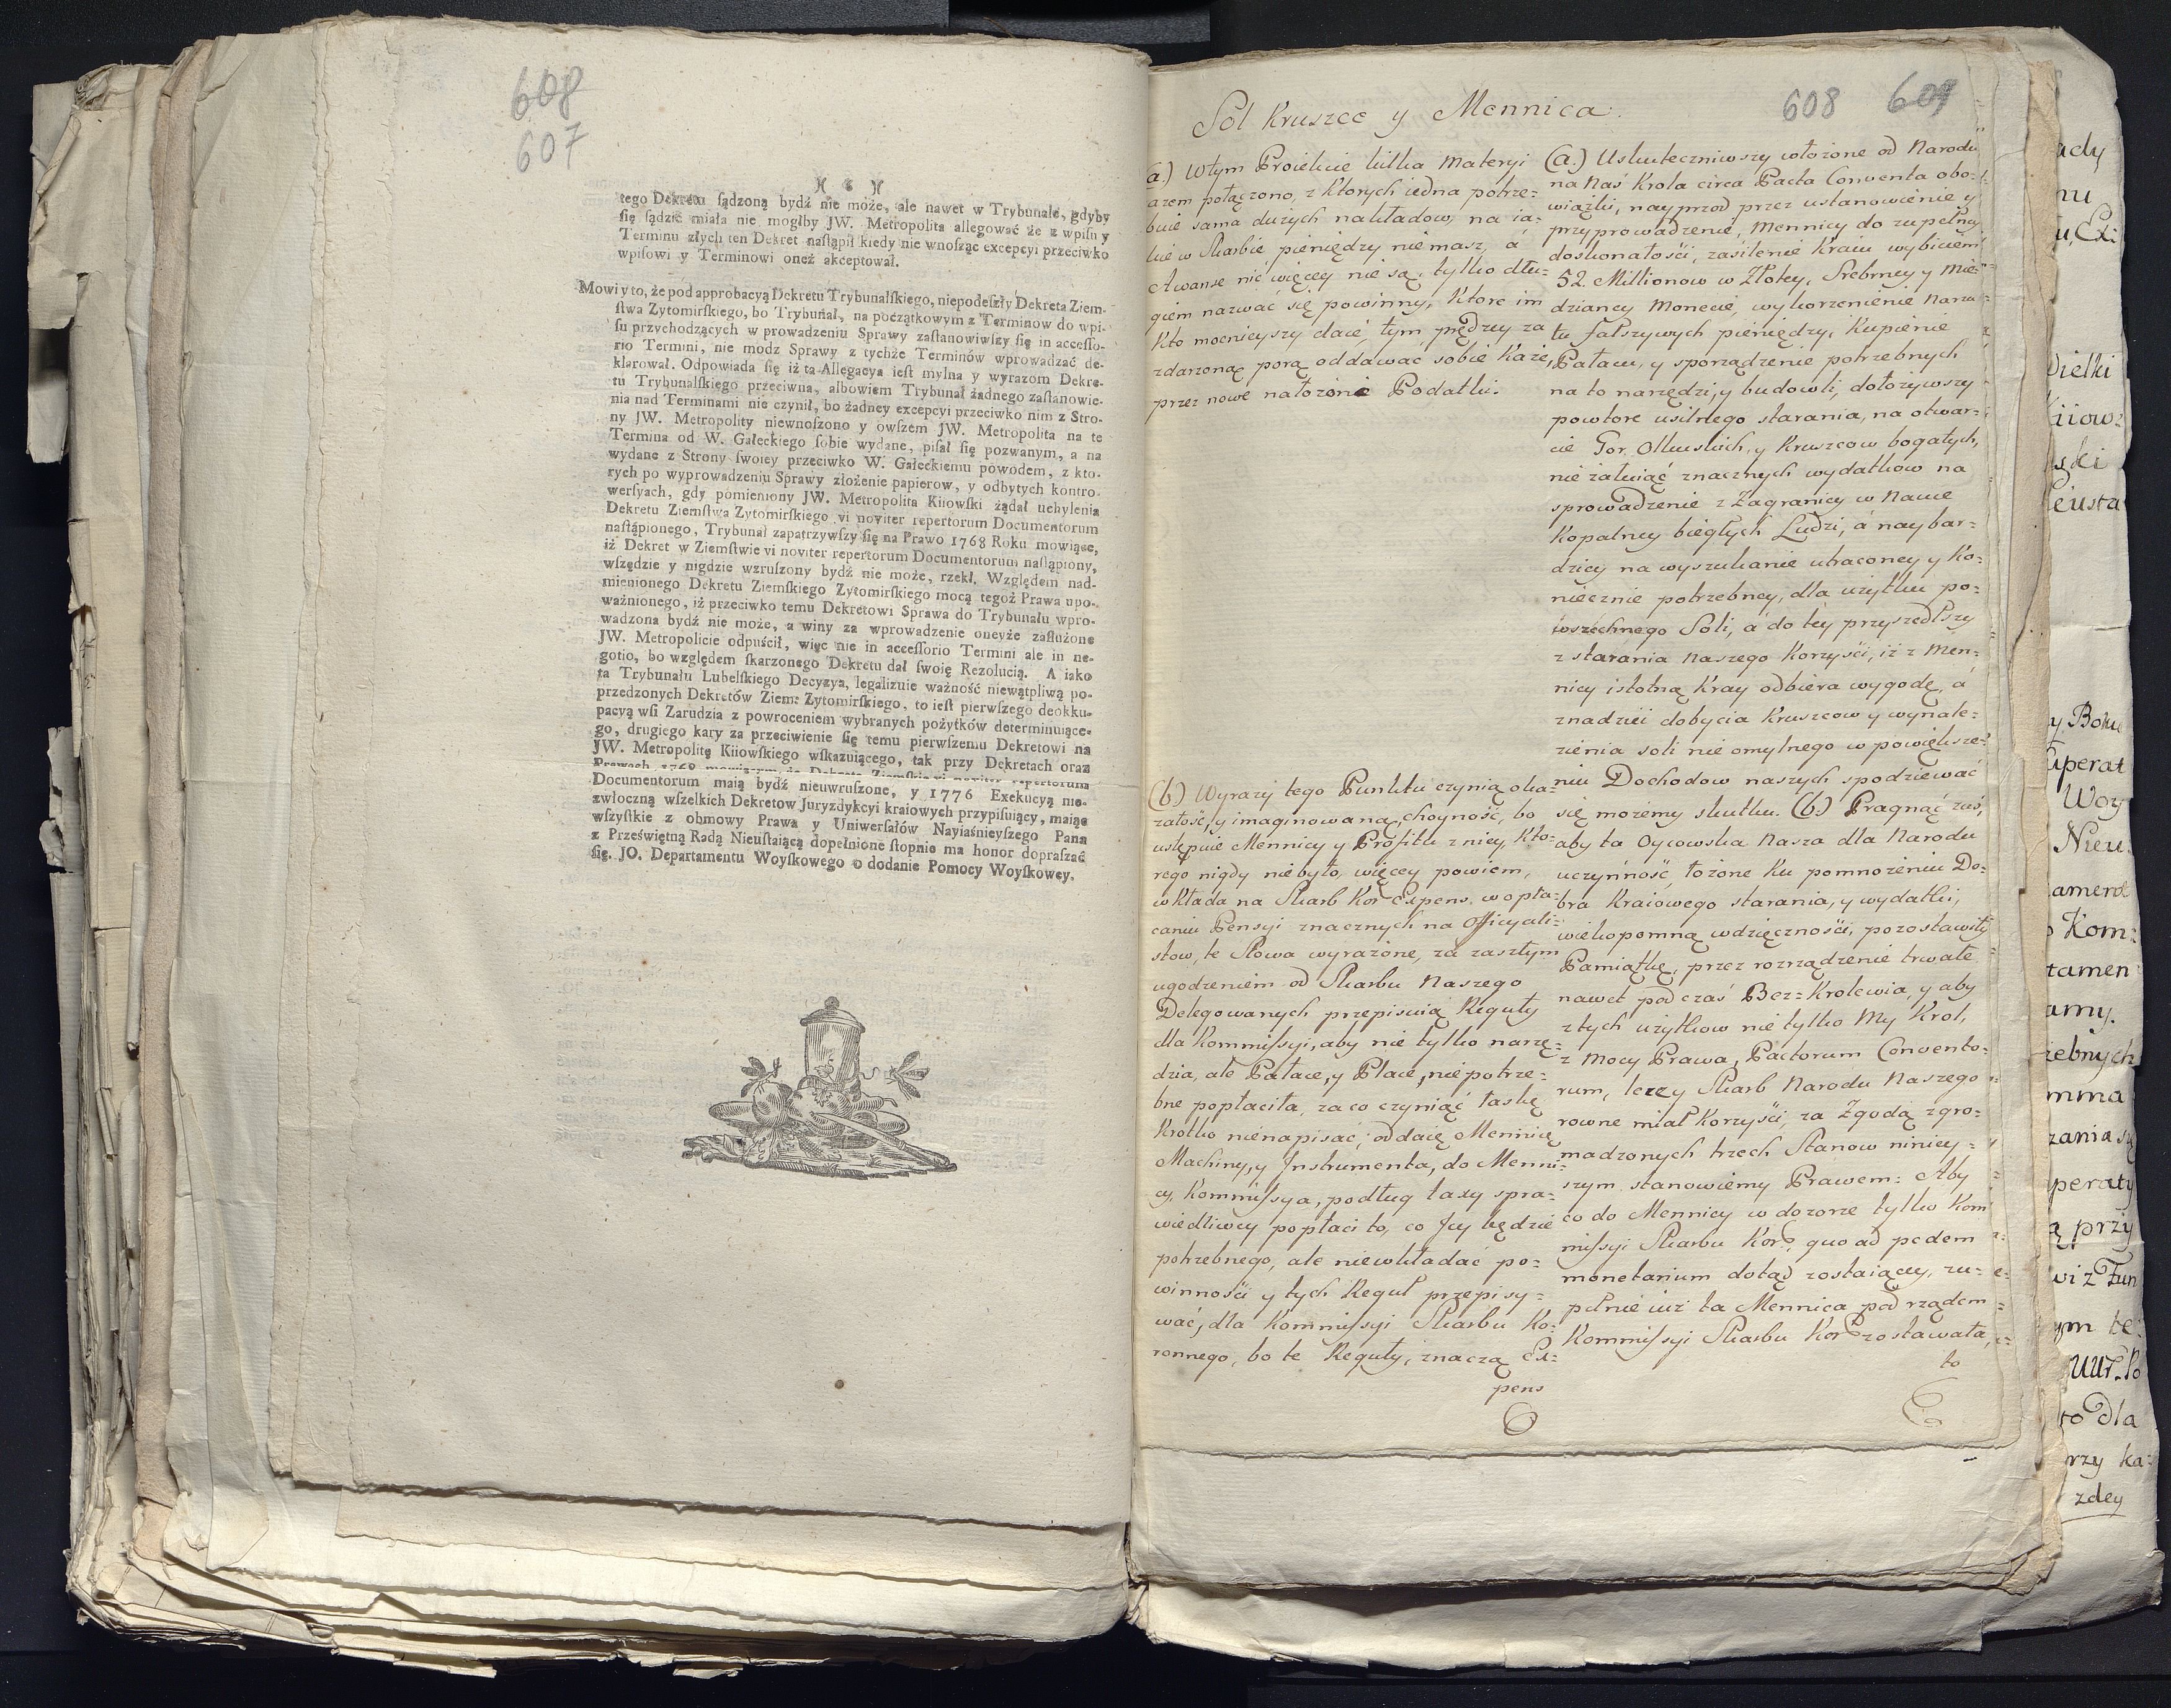 608
607
)( 6 )(
tego Dekretu ſądzoną bydź nie może, ale nawet w Trybunale, gdyby
ſię ſądzić miała nie mogłby JW. Metropolita allegować że z wpiſu y
Terminu złych ten Dekret naſtąpił kiedy nie wnoſząc excepcyi przeciwko
wpiſowi y Terminowi oneż akceptował.
Mowi y to, że pod approbacyą Dekretu Trybunalſkiego, niepodeſzły Dekreta Ziem-
ſtwa Zytomirſkiego, bo Trybunał, na początkowym z Terminow do wpi-
ſu przychodzących w prowadzeniu Sprawy zaſtanowiwſzy ſię in acceſſo-
rio Termini, nie modz Sprawy z tychże Terminów wprowadzać de-
klarował. Odpowiada ſię iż ta Allegacya ieſt mylna y wyrazom Dekre-
tu Trybunalſkiego przeciwna, albowiem Trybunał żadnego zaſtanowie-
nia nad Terminami nie czynił, bo żadney excepcyi przeciwko nim z Stro-
ny JW. Metropolity niewnoſzono y owſzem JW. Metropolita na te
Termina od W. Gałeckiego ſobie wydane, piſał ſię pozwanym, a na
wydane z Strony ſwoiey przeciwko W. Gałeckiemu powodem, z kto-
rych po wyprowadzeniu Sprawy złożenie papierow, y odbytych kontro-
werſyach, gdy pomieniony JW. Metropolita Kiiowſki żądał uchylenia
Dekretu Ziemſtwa Zytomirſkiego vi noviter repertorum Documentorum
naſtąpionego, Trybunał zapatrzywſzy ſię na Prawo 1768 Roku mowiące,
iż Dekret w Ziemſtwie vi noviter repertorum Documentorum naſtąpiony,
wſzędzie y nigdzie wzruſzony bydź nie może, rzekł. Względem nad-
mienionego Dekretu Ziemſkiego Zytomirſkiego mocą tegoż Prawa upo-
ważnionego, iż przeciwko temu Dekretowi Sprawa do Trybunału wpro-
wadzona bydź nie może, a winy za wprowadzenie oneyże zaſłużone
JW. Metropolicie odpuścił, więc nie in acceſſorio Termini ale in ne-
gotio, bo względem ſkarzonego Dekretu dał ſwoię Rezolucią. A iako
ta Trybunału Lubelſkiego Decyzya, legalizuie ważność niewątpliwą po-
przedzonych Dekretów Ziem: Zytomirſkiego, to ieſt pierwſzego deokku-
pacyą wſi Zarudzia z powroceniem wybranych pożytków determinuiące-
go, drugiego kary za przeciwienie ſię temu pierwſzemu Dekretowi na
JW. Metropolitę Kiiowſkiego wſkazuiącego, tak przy Dekretach oraz
Prawach 1768 mowiącym że Dekreta Ziemſkie vi noviter repertorum
Documentorum maią bydź nieuwruſzone, y 1776 Exekucyą nie-
zwłoczną wſzelkich Dekretow Juryzdykcyi kraiowych przypiſuiący, maiąc
wſzyſtkie z obmowy Prawa y Uniwerſałów Nayiaśnieyſzego Pana
z Przeświętną Radą Nieuſtaiącą dopełnione ſtopnie ma honor dopraſzać
ſię. JO. Departamentu Woyſkowego o dodanie Pomocy Woyſkowey.
608 609
Sol Kruszce y Mennica.
(a.) Wtym Proiekcie kilka materyi
razem połączono, z ktorych iedna potrze-
buie sama dużych nakładow, na ia-
kie w Skarbie, pieniędzy niemasz, á
Awanse nic więcey nie są, tylko dłu-
giem nazwać się powinny, ktore im
kto mocnieyszy daie, tym prędzey za
zdarzoną porą oddawać sobie każe,
przez nowe nałożone Podatki.
(b.) Wyrazy tego Punktu czynią oka-
załość, y imaginowaną choyność, bo
ustępuie Mennicy y Profitu z niey, kto-
rego nigdy niebyło, więcey powiem,
wkłada na Skarb Kor Expens, w opła-
caniu Pensyi znacznych na Officyali-
stow, te Słowa wyrażone, za zaszłym
ugodzeniem od Skarbu Naszego
Delegowanych przepisuią Reguły
dla Kommissyi, aby nie tylko narzę-
dzia, ale Pałace, y Place, niepotrze-
bne popłaciła, zaco czyniąc łaskę
krotko nienapisać, oddaię Mennicę
Machiny, y Jnstrumenta, do Menni-
cy, Kommissya, podług taxy spra-
wiedliwey popłaci to, co Jey będzie
potrzebnego, ale niewkładać po-
winności y tych Reguł przepisy-
wać, dla Kommissyi Skarbu Ko-
ronnego, bo te Reguły, znaczą Ex-
pens
(a.) Uskuteczniwszy włożone od Narodu
na Nas Krola circa Pacta Conventa obo-
wiązki, nayprzod przez ustanowienie y
przyprowadzenie, Mennicy do zupełney
doskonałości, zasilenie Kraiu wybiciem
52. Millionow w Złotey, Srebrney y Mie-
dzianey Monecie, wykorzenienie Narzu-
tu fałszywych pieniędzy, Kupienie
Pałacu, y sporządzenie potrzebnych
na to narzędzi, y budowli, dołożywszy
powtore usilnego starania, na otwar-
cie Gor Olkuskich, y Kruszcow bogatych,
nie żałuiąc znacznych wydatkow na
sprowadzenie z Zagranicy w Nauce
Kopalney biegłych Ludzi, á naybar-
dziey na wyszukanie utraconey y ko-
niecznie potrzebney, dla użytku po-
wszechnego Soli, á do tey przyszedłszy
z starania Naszego Korzyści, iż z Men-
nicy istotną Kray odbiera wygodę, á
z nadzieii dobycia Kruszcow y wynale-
zienia soli nie omylnego w powiększe-
niu Dochodow naszych spodziewać
się możemy skutku. (b.) Pragnąc zaś,
aby ta Oycowska Nasza dla Narodu
uczynność, łożone ku pomnożeniu Do-
bra Kraiowego starania, y wydatki,
wiekopomną wdzięczności, pozostawiły
Pamiątkę, przez rozrządzenie trwałe
nawet podczas Bez-Krolewia, y aby
z tych użytkow nie tylko My Krol,
z Mocy Prawa, Pactorum Convento-
rum, lecz y Skarb Narodu Naszego
rowne miał Korzyści, za Zgodą zgro-
madzonych trzech Stanow niniey-
szym stanowiemy Prawem: Aby
co do Mennicy w dozorze tylko Kom
missyi Skarbu Kor: quo ad pedem
monetarium dotąd zostaiącey, zu-
pełnie iuż ta Mennica pod rządem
Kommissyi Skarbu Kor: zostawała,
to